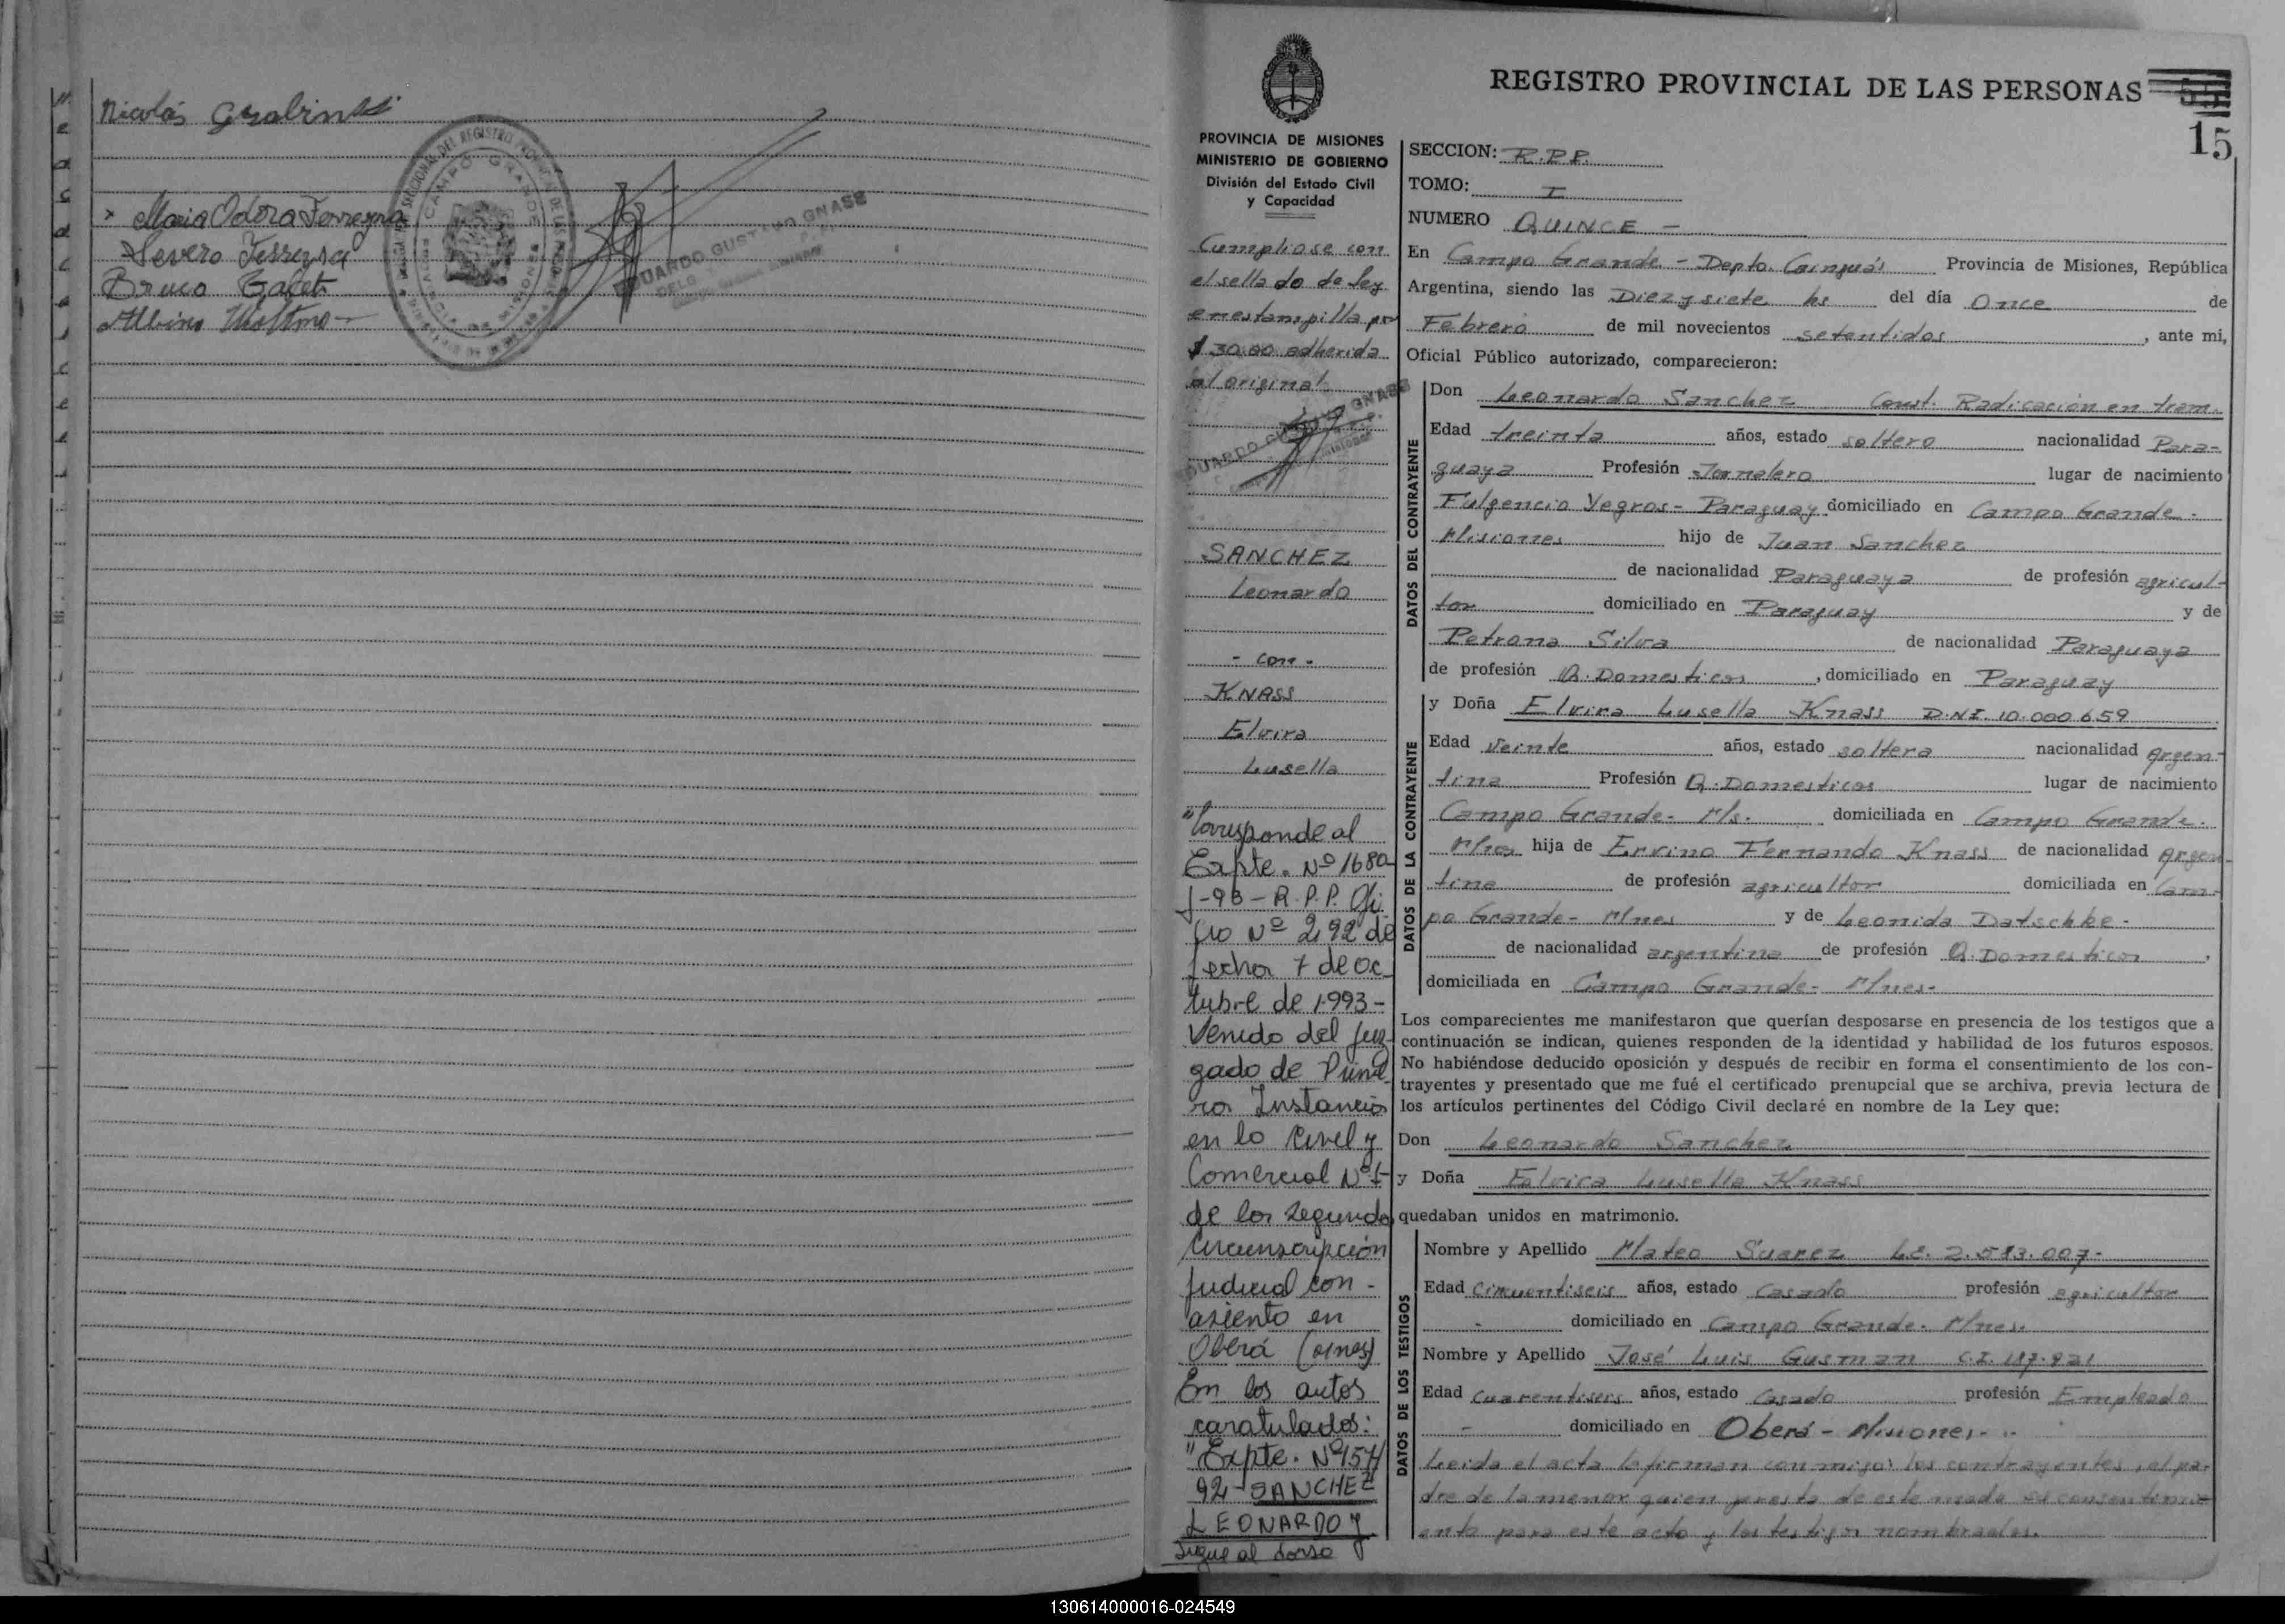 Nicolás Grabinski
x Maria Odora Ferreyra
Severo Ferreyra
Bruno
Albino
CAMPO GRANDE
EDUARDO GUSTAVO GNASS
REGISTRO PROVINCIAL DE LAS PERSONAS
15
PROVINCIA DE MISIONES
MINISTERIO DE GOBIERNO
División del Estado Civil
y Capacidad
Cumpliose con
el sellado de ley
en estampilla por
$ 30.00 adherida
al original.
EDUARDO GUSTAVO GNASS
SANCHEZ
Leonardo
- con -
KNASS
Elvira
Lusella
"Corresponde al
Expte. Nº 1680-
J-93-R.P.P. Ofi-
cio Nº 292 de
fecha 7 de oc-
tubre de 1993-
Venido del Juz-
gado de Prime-
ra Instancia
en lo Civil y
Comercial Nº 1-
de la Segunda
Circunscripción
Judicial con-
asiento en
Oberá (Mnes)
En los autos
caratulados:
"Expte. Nº 157/
92-SANCHEZ
LEONARDO y
Sigue al dorso
SECCION: R.P.P.
TOMO: I
NUMERO QUINCE -
En Campo Grande - Depto. Cainguás Provincia de Misiones, República
Argentina, siendo las Diez y siete hs del día Once de
Febrero de mil novecientos setentidos, ante mi,
Oficial Público autorizado, comparecieron:
DATOS DEL CONTRAYENTE
Don Leonardo Sanchez Const. Radicación en tram.
Edad treinta años, estado soltero nacionalidad Para-
guaya Profesión Jornalero lugar de nacimiento
Fulgencio Yegros - Paraguay domiciliado en Campo Grande -
Misiones hijo de Juan Sanchez
de nacionalidad Paraguaya de profesión agricul-
tor domiciliado en Paraguay y de
Petrona Silva de nacionalidad Paraguaya
de profesión Q. Domesticos, domiciliado en Paraguay
DATOS DE LA CONTRAYENTE
y Doña Elvira Lusella Knass D.N.I. 10.000.659
Edad Veinte años, estado soltera nacionalidad Argen-
tina Profesión Q. Domesticos lugar de nacimiento
Campo Grande - Ms. domiciliada en Campo Grande -
Mnes hija de Ervino Fernando Knass de nacionalidad Argen-
tina de profesión agricultor domiciliada en Cam-
po Grande - Mnes y de Leonida Datschke -
de nacionalidad argentina de profesión Q. Domesticos,
domiciliada en Campo Grande - Mnes -
Los comparecientes me manifestaron que querían desposarse en presencia de los testigos que a
continuación se indican, quienes responden de la identidad y habilidad de los futuros esposos.
No habiéndose deducido oposición y después de recibir en forma el consentimiento de los con-
trayentes y presentado que me fué el certificado prenupcial que se archiva, previa lectura de
los artículos pertinentes del Código Civil declaré en nombre de la Ley que:
Don Leonardo Sanchez
y Doña Elvira Lusella Knass
quedaban unidos en matrimonio.
DATOS DE LOS TESTIGOS
Nombre y Apellido Mateo Suarez L.E. 2.583.007-
Edad Cincuentiseis años, estado Casado profesión agricultor
- domiciliado en Campo Grande - Mnes.
Nombre y Apellido José Luis Gusman C.I. 187.821
Edad Cuarentiseis años, estado Casado profesión Empleado
- domiciliado en Oberá - Misiones -
Leida el acta la firman conmigo: los contrayentes, el pa-
dre de la menor quien presta de este modo su consentimi-
ento para este acto y los testigos nombrados.
130614000016-024549